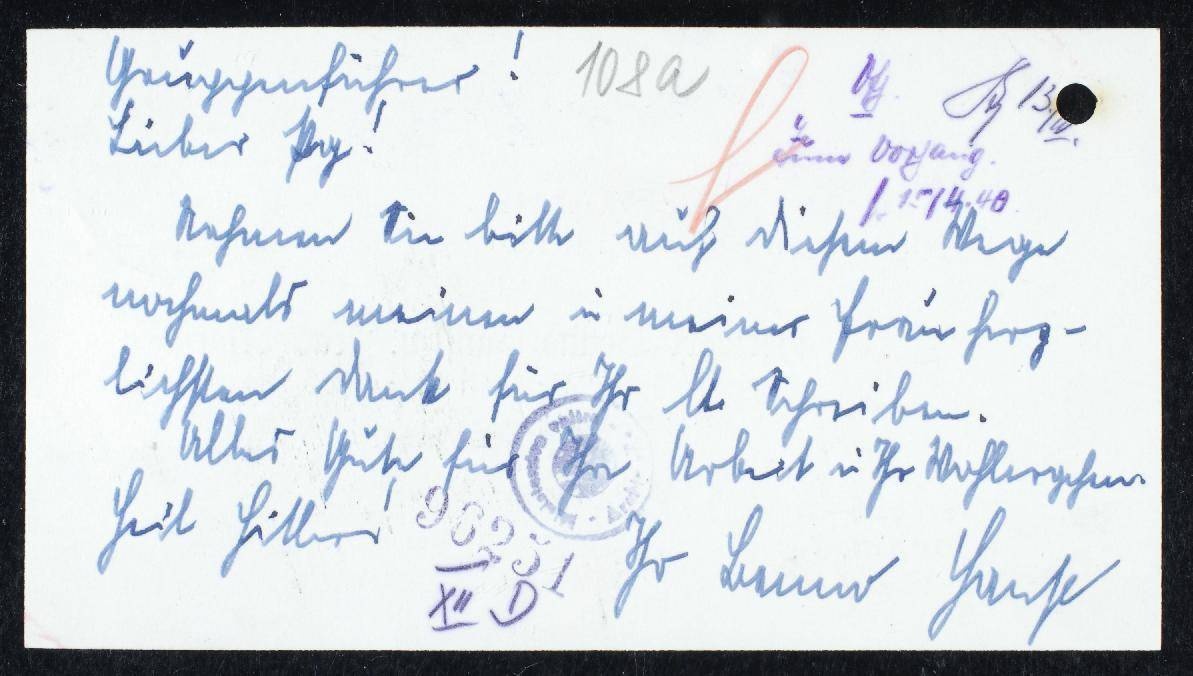 Gruppenführer! 108a
Lieber Pg!
Vfg.
13/IV.
Zum Vorgang.
15/4.40
Nehmen Sie bitte auf diesem Wege
nochmals meinen u meiner Frau herz-
lichsten Dank für Ihr lb. Schreiben.
Alles Gute für Ihre Arbeit u Ihr Wohlergehen.
Heil Hitler!
Ihr Benno
96251
XII D